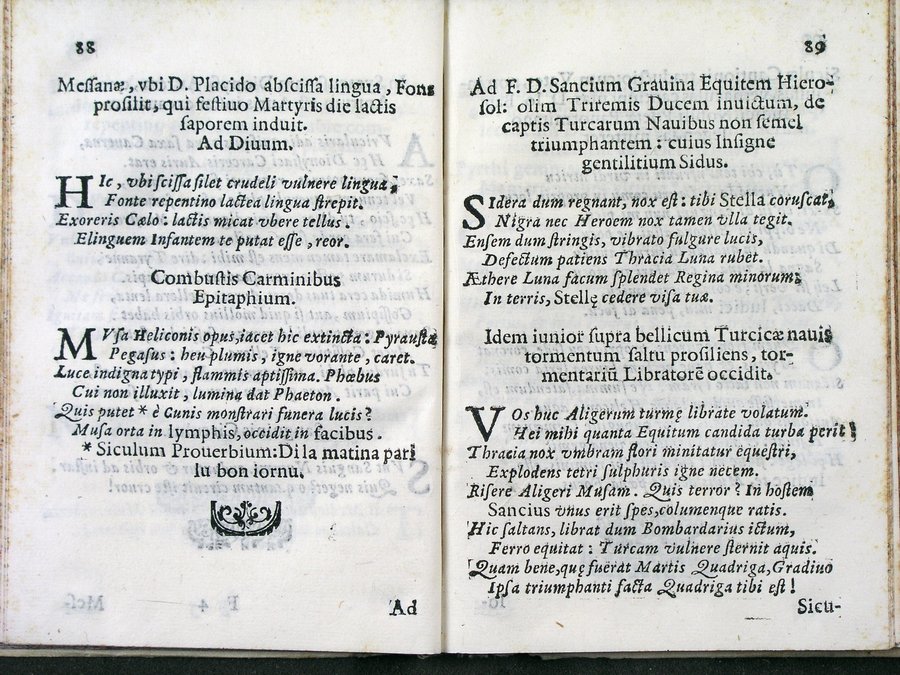 88
Meſſanæ, vbi D. Placido abſciſſa lingua, Fons
proſilit, qui feſtiuo Martyris die lactis
ſaporem induit.
Ad Diuum.
HIc, vbi ſciſſa ſilet crudeli vulnere lingua,
Fonte repentino lactea lingua ſtrepit.
Exoreris Cælo: lactis micat vbere tellus.
Elinguem Infantem te putat eſſe, reor.
Combuſtis Carminibus
Epitaphium.
MVſa Heliconis opus, iacet hic extincta: Pyrauſta
Pegaſus: heu plumis, igne vorante, caret.
Luce indigna typi, flammis aptiſſima. Phœbus
Cui non illuxit, lumina dat Phaeton.
Quis putet * è Cunis monſtrari funera lucis?
Muſa orta in lymphis, occidit in facibus.
* Siculum Prouerbium: Di la matina pari
lu bon iornu.
Ad
89
Ad F. D. Sancium Grauina Equitem Hiero-
ſol: olim Triremis Ducem inuictum, de
captis Turcarum Nauibus non ſemel
triumphantem: cuius Inſigne
gentilitium Sidus.
SIdera dum regnant, nox eſt: tibi Stella coruſcat,
Nigra nec Heroem nox tamen vlla tegit.
Enſem dum ſtringis, vibrato fulgure lucis,
Defectum patiens Thracia Luna rubet.
Æthere Luna facum ſplendet Regina minorum;
In terris, Stellę cedere viſa tuæ.
Idem iunior ſupra bellicum Turcicæ nauis
tormentum ſaltu proſiliens, tor-
mentariũ Libratorẽ occidit.
VOs huc Aligerum turmę librate volatum.
Hei mihi quanta Equitum candida turba perit!
Thracia nox vmbram flori minitatur equeſtri,
Explodens tetri ſulphuris igne necem.
Riſere Aligeri Muſam. Quis terror? In hoſtem
Sancius vnus erit ſpes, columenque ratis.
Hic ſaltans, librat dum Bombardarius ictum,
Ferro equitat: Turcam vulnere ſternit aquis.
Quam bene, quę fuerat Martis Quadriga, Gradiuo
Ipſa triumphanti facta Quadriga tibi eſt!
Sicu-